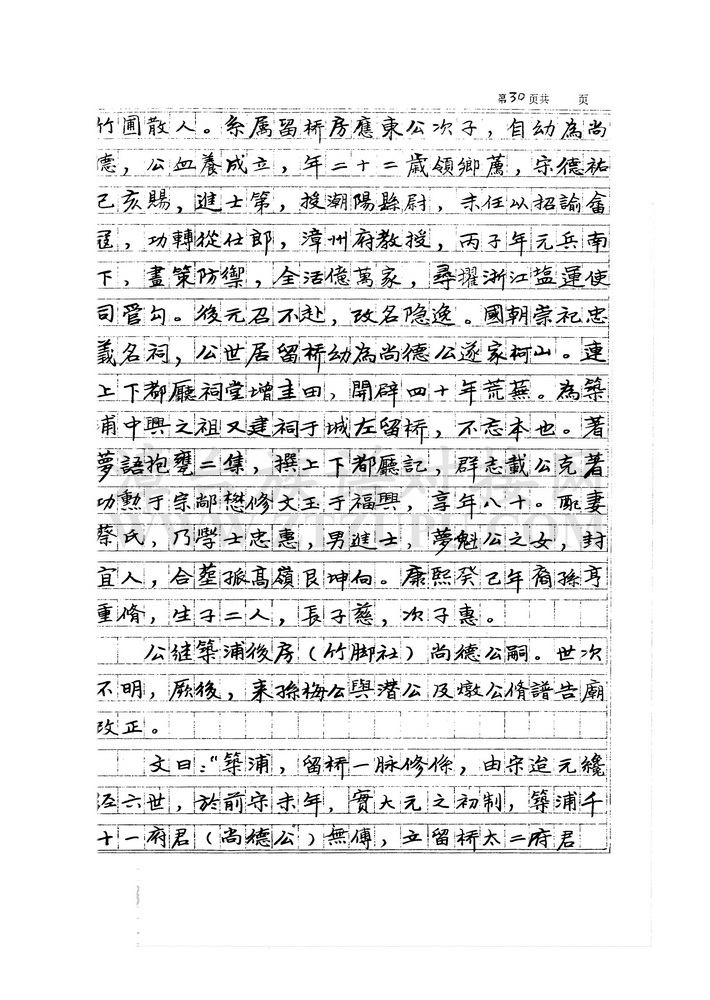 第30页共 页
竹圃散人。系属留桥房應東公次子，自幼為尚
德，公血養成立，年二十二歲領鄉薦，宋德祐
己亥賜，進士第，授潮陽縣尉，未任以招諭畬
寇，功轉從仕郎，漳州府教授，丙子年元兵南
下，畫策防禦，全活億萬家，尋擢浙江塩運使
司管勾。後元召不赴，改名隐逸。國朝崇祀忠
義名祠，公世居留桥幼為尚德公遂家柯山。連
上下都廳祠堂增圭田，開辟四十年荒蕪。為築
浦中興之祖又建祠于城左留桥，不忘本也。著
夢語抱甕二集，撰上下都廳記，群志載公克著
功勳于宗鄗懋修文玉于福興，享年八十。配妻
蔡氏，乃學士忠惠，男進士，夢魁公之女，封
宜人，合塟孤髙嶺艮坤向。康熙癸己年裔孫亨
重脩，生子二人，長子慈，次子惠。
公继築浦後房（竹脚社）尚德公嗣。世次
不明，厥後，耒孫梅公與潜公及燉公脩譜告廟
改正。
文曰：“築浦，留桥一脉修條，由宋迨元纔
经六世，於前宋末年，實大元之初制，築浦千
十一府君（尚德公）無傳，立留桥太二府君